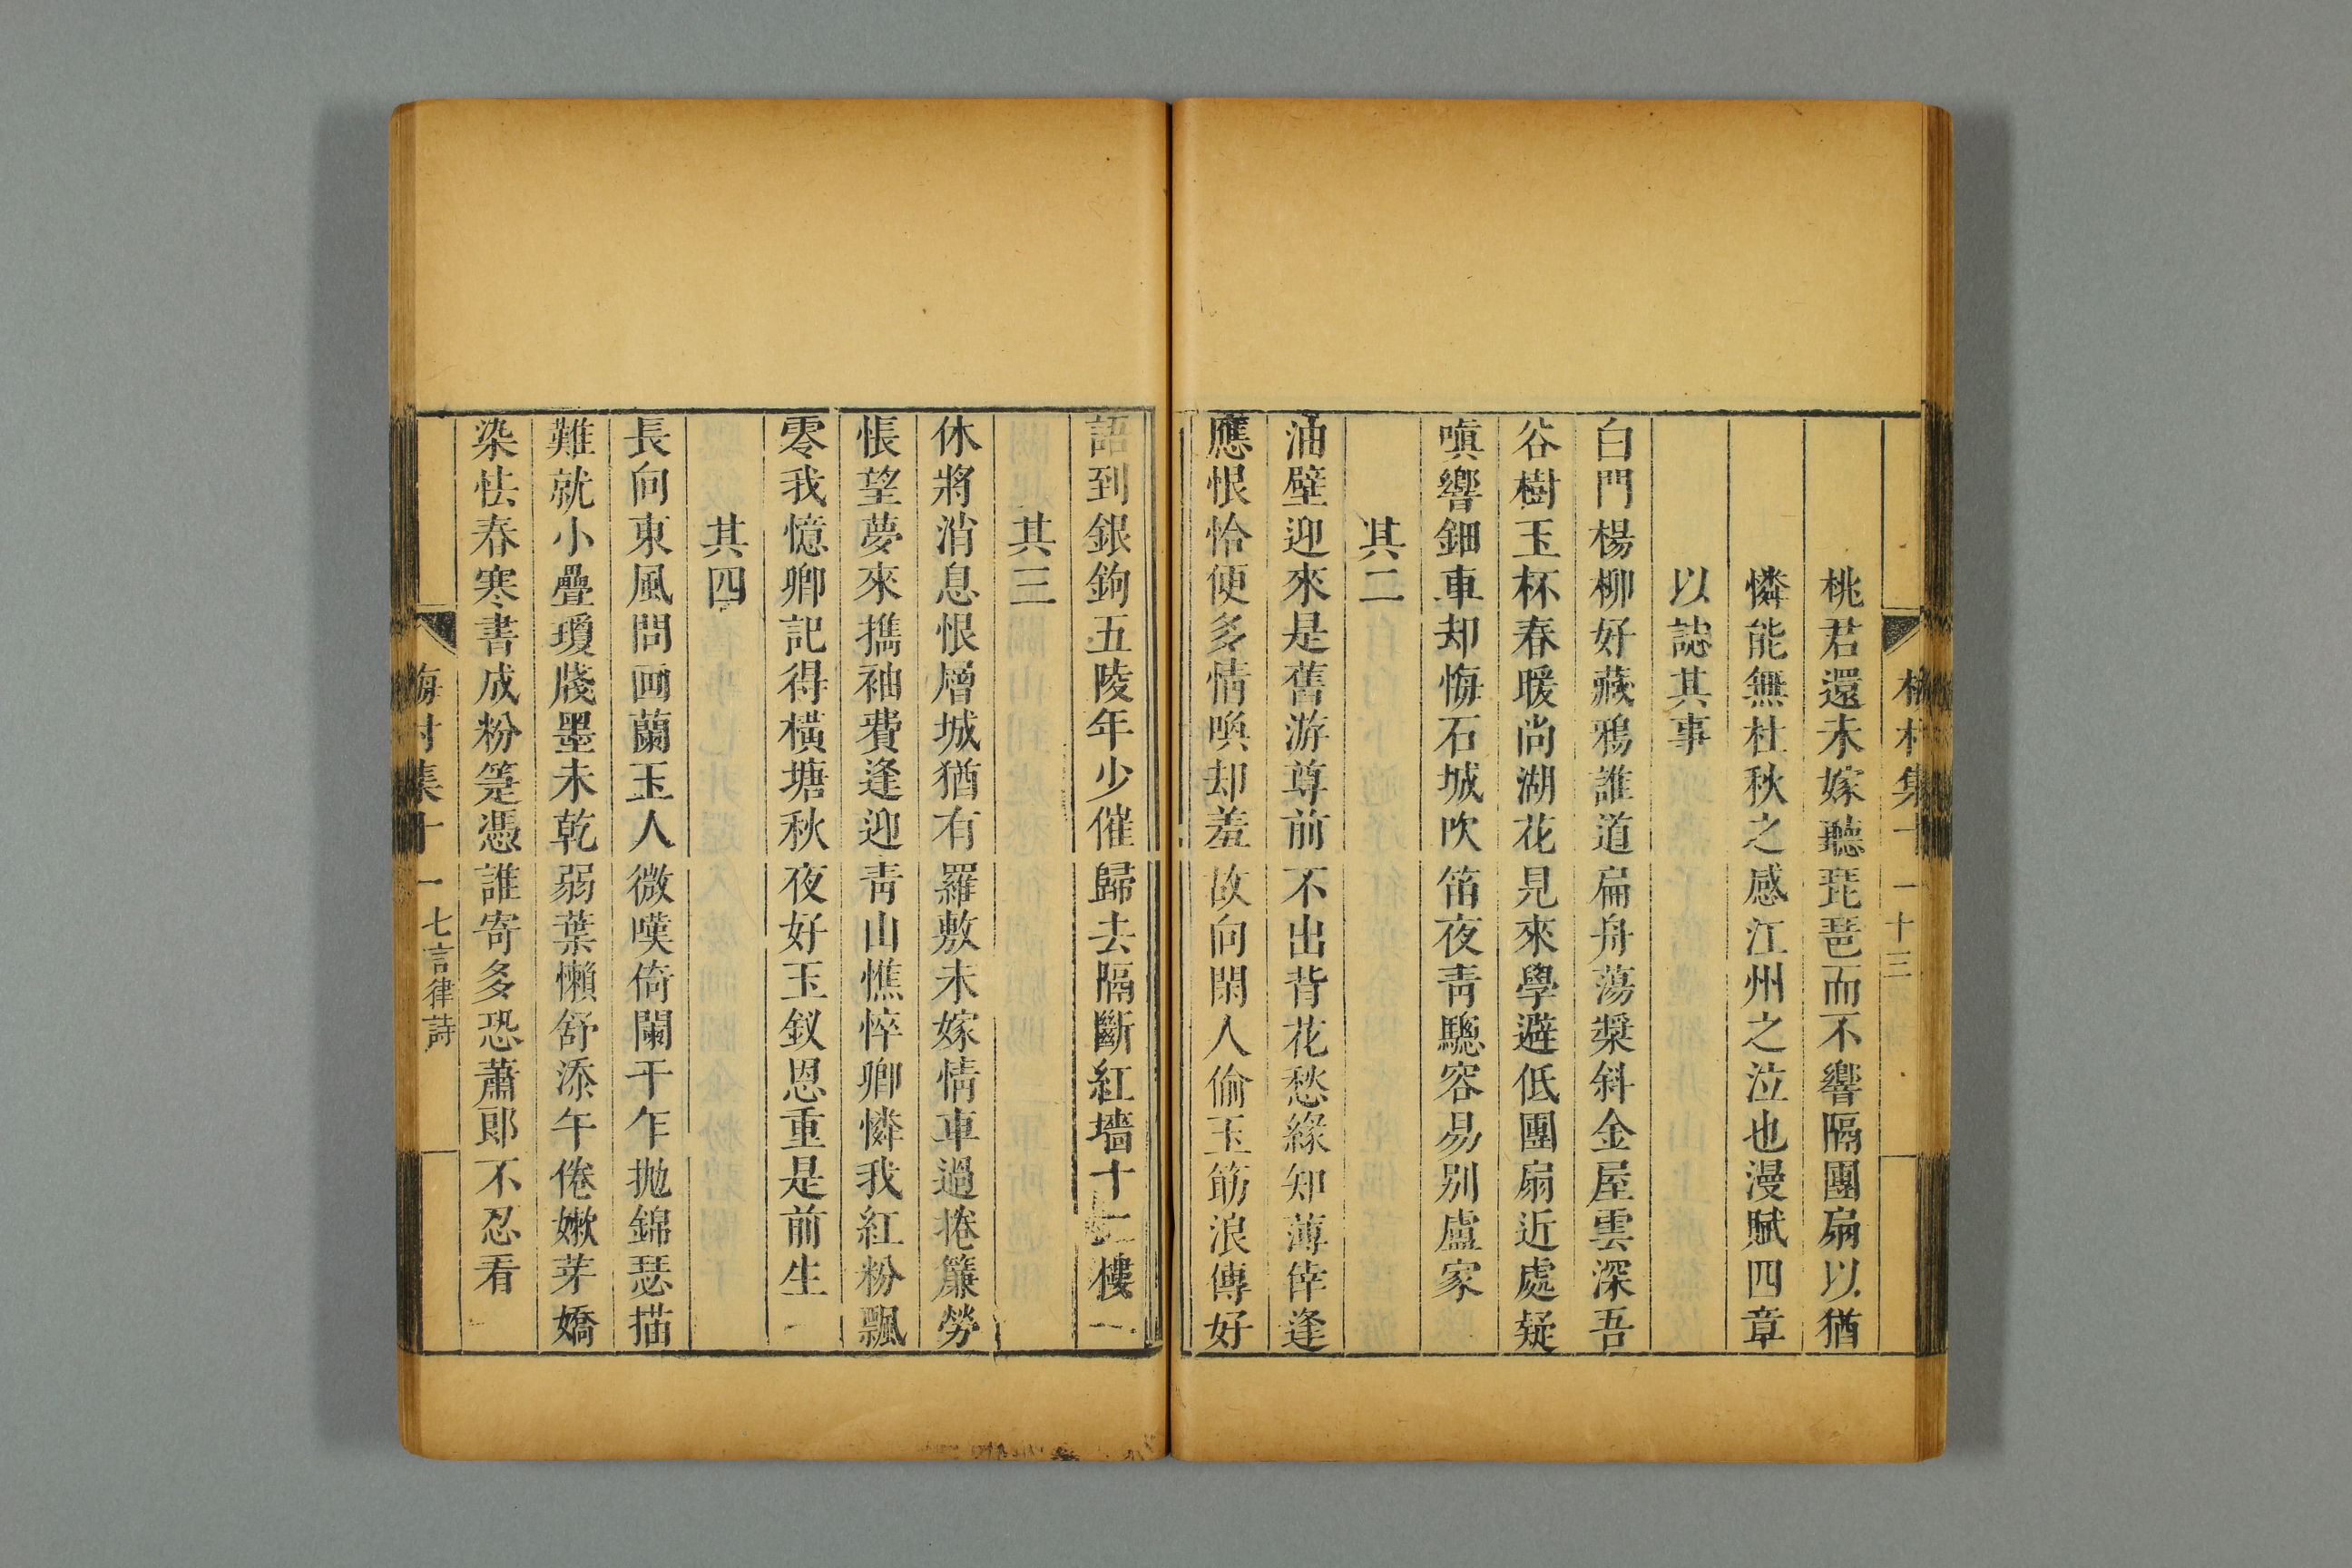 梅村集十 一 十三
桃君還未嫁聽琵琶而不響隔團扇以猶
憐能無杜秋之感江州之泣也漫賦四章
以誌其事
白門楊柳好藏鴉誰道扁舟蕩槳斜金屋雲深吾
谷樹玉杯春暖尚湖花見來學避低團扇近處疑
嗔響鈿車却悔石城吹笛夜青驄容易別盧家
其二
油壁迎來是舊游尊前不出背花愁緣知薄倖逢
應恨恰便多情喚却羞故向閑人偷玉筯浪傳好
語到銀鉤五陵年少催歸去隔斷紅墻十二樓
其三
休將消息恨層城猶有羅敷未嫁情車過捲簾勞
悵望夢來攜袖費逢迎青山憔悴卿憐我紅粉飄
零我憶卿記得橫塘秋夜好玉釵恩重是前生
其四
長向東風問画蘭玉人微嘆倚闌干乍拋錦瑟描
難就小疊瓊牋墨未乾弱葉懶舒添午倦嫩芽嬌
染怯春寒書成粉箑憑誰寄多恐蕭郎不忍看
梅村集十 一 七言律詩